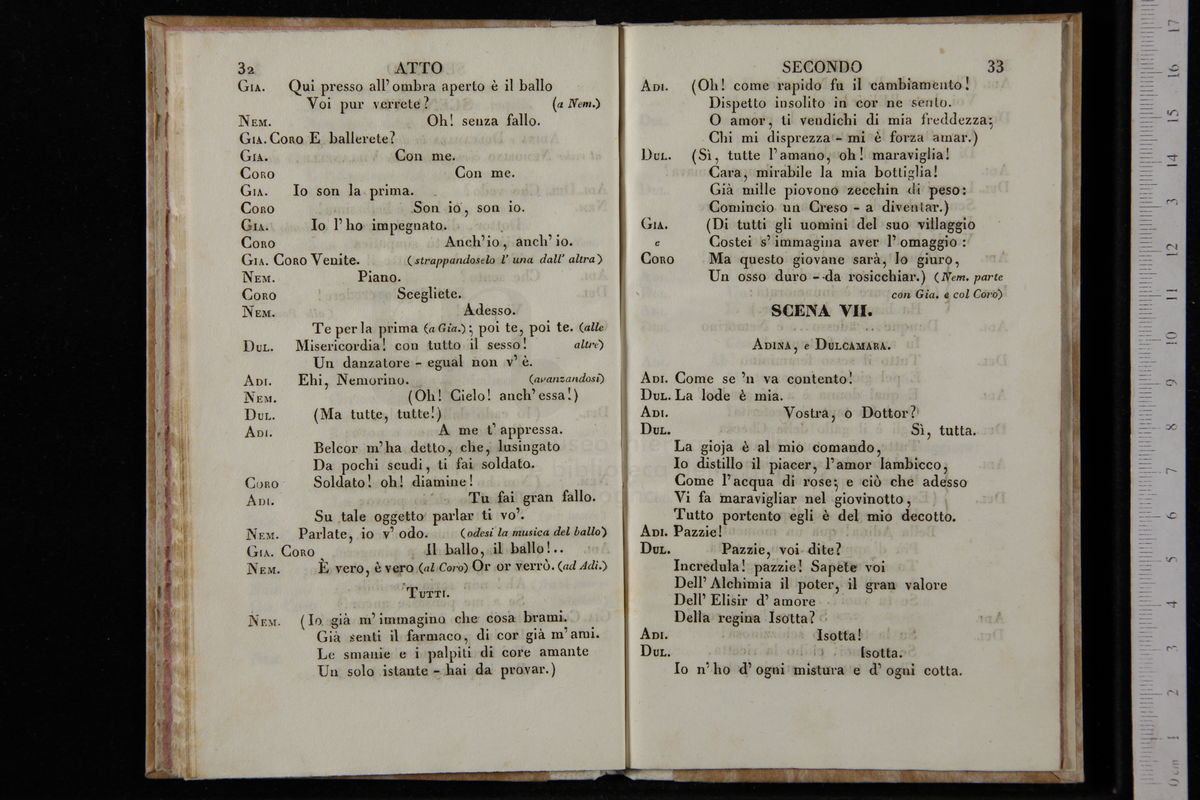 32 ATTO
GIA. Qui presso all' ombra aperto è il ballo
Voi pur verrete? (a Nem.)
NEM. Oh! senza fallo.
GIA. CORO E ballerete?
GIA. Con me.
CORO Con me.
GIA. Io son la prima.
CORO Son io, son io.
GIA. Io l'ho impegnato.
CORO Anch'io, anch'io.
GIA. CORO Venite. (strappandoselo l' una dall' altra)
NEM. Piano.
CORO Scegliete.
NEM. Adesso.
Te per la prima (a Gia.); poi te, poi te. (alle
DUL. Misericordia! con tutto il sesso! altre)
Un danzatore - egual non v' è.
ADI. Ehi, Nemorino. (avanzandosi)
NEM. (Oh! Cielo! anch' essa!)
DUL. (Ma tutte, tutte!)
ADI. A me t' appressa.
Belcor m'ha detto, che, lusingato
Da pochi scudi, ti fai soldato.
CORO Soldato! oh! diamine!
ADI. Tu fai gran fallo.
Su tale oggetto parlar ti vo'.
NEM. Parlate, io v' odo. (odesi la musica del ballo)
GIA. CORO Il ballo, il ballo!..
NEM. È vero, è vero (al Coro) Or or verrò. (ad Adi.)
TUTTI.
NEM. (Io già m' immagino che cosa brami.
Già senti il farmaco, di cor già m' ami.
Le smanie e i palpiti di core amante
Un solo istante - hai da provar.)
SECONDO 33
ADI. (Oh! come rapido fu il cambiamento!
Dispetto insolito in cor ne sento.
O amor, ti vendichi di mia freddezza;
Chi mi disprezza - mi è forza amar.)
DUL. (Sì, tutte l'amano, oh! maraviglia!
Cara, mirabile la mia bottiglia!
Già mille piovono zecchin di peso:
Comincio un Creso - a diventar.)
GIA. (Di tutti gli uomini del suo villaggio
e Costei s' immagina aver l' omaggio:
CORO Ma questo giovane sarà, lo giuro,
Un osso duro - da rosicchiar.) (Nem. parte
con Gia. e col Coro)
SCENA VII.
ADINA, e DULCAMARA.
ADI. Come se 'n va contento!
DUL. La lode è mia.
ADI. Vostra, o Dottor?
DUL. Sì, tutta.
La gioja è al mio comando,
Io distillo il piacer, l'amor lambicco,
Come l'acqua di rose; e ciò che adesso
Vi fa maravigliar nel giovinotto,
Tutto portento egli è del mio decotto.
ADI. Pazzie!
DUL. Pazzie, voi dite?
Incredula! pazzie! Sapete voi
Dell' Alchimia il poter, il gran valore
Dell' Elisir d' amore
Della regina Isotta?
ADI. Isotta!
DUL. Isotta.
Io n' ho d' ogni mistura e d' ogni cotta.